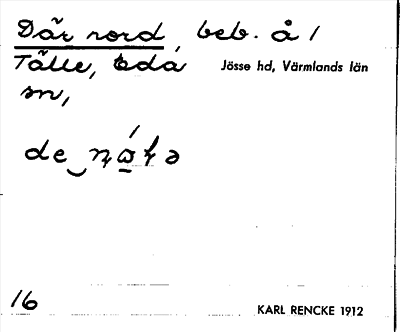 Där nord, beb. å 1
Tälle, Eda Jösse hd, Värmlands län
sn,
16 KARL RENCKE 1912